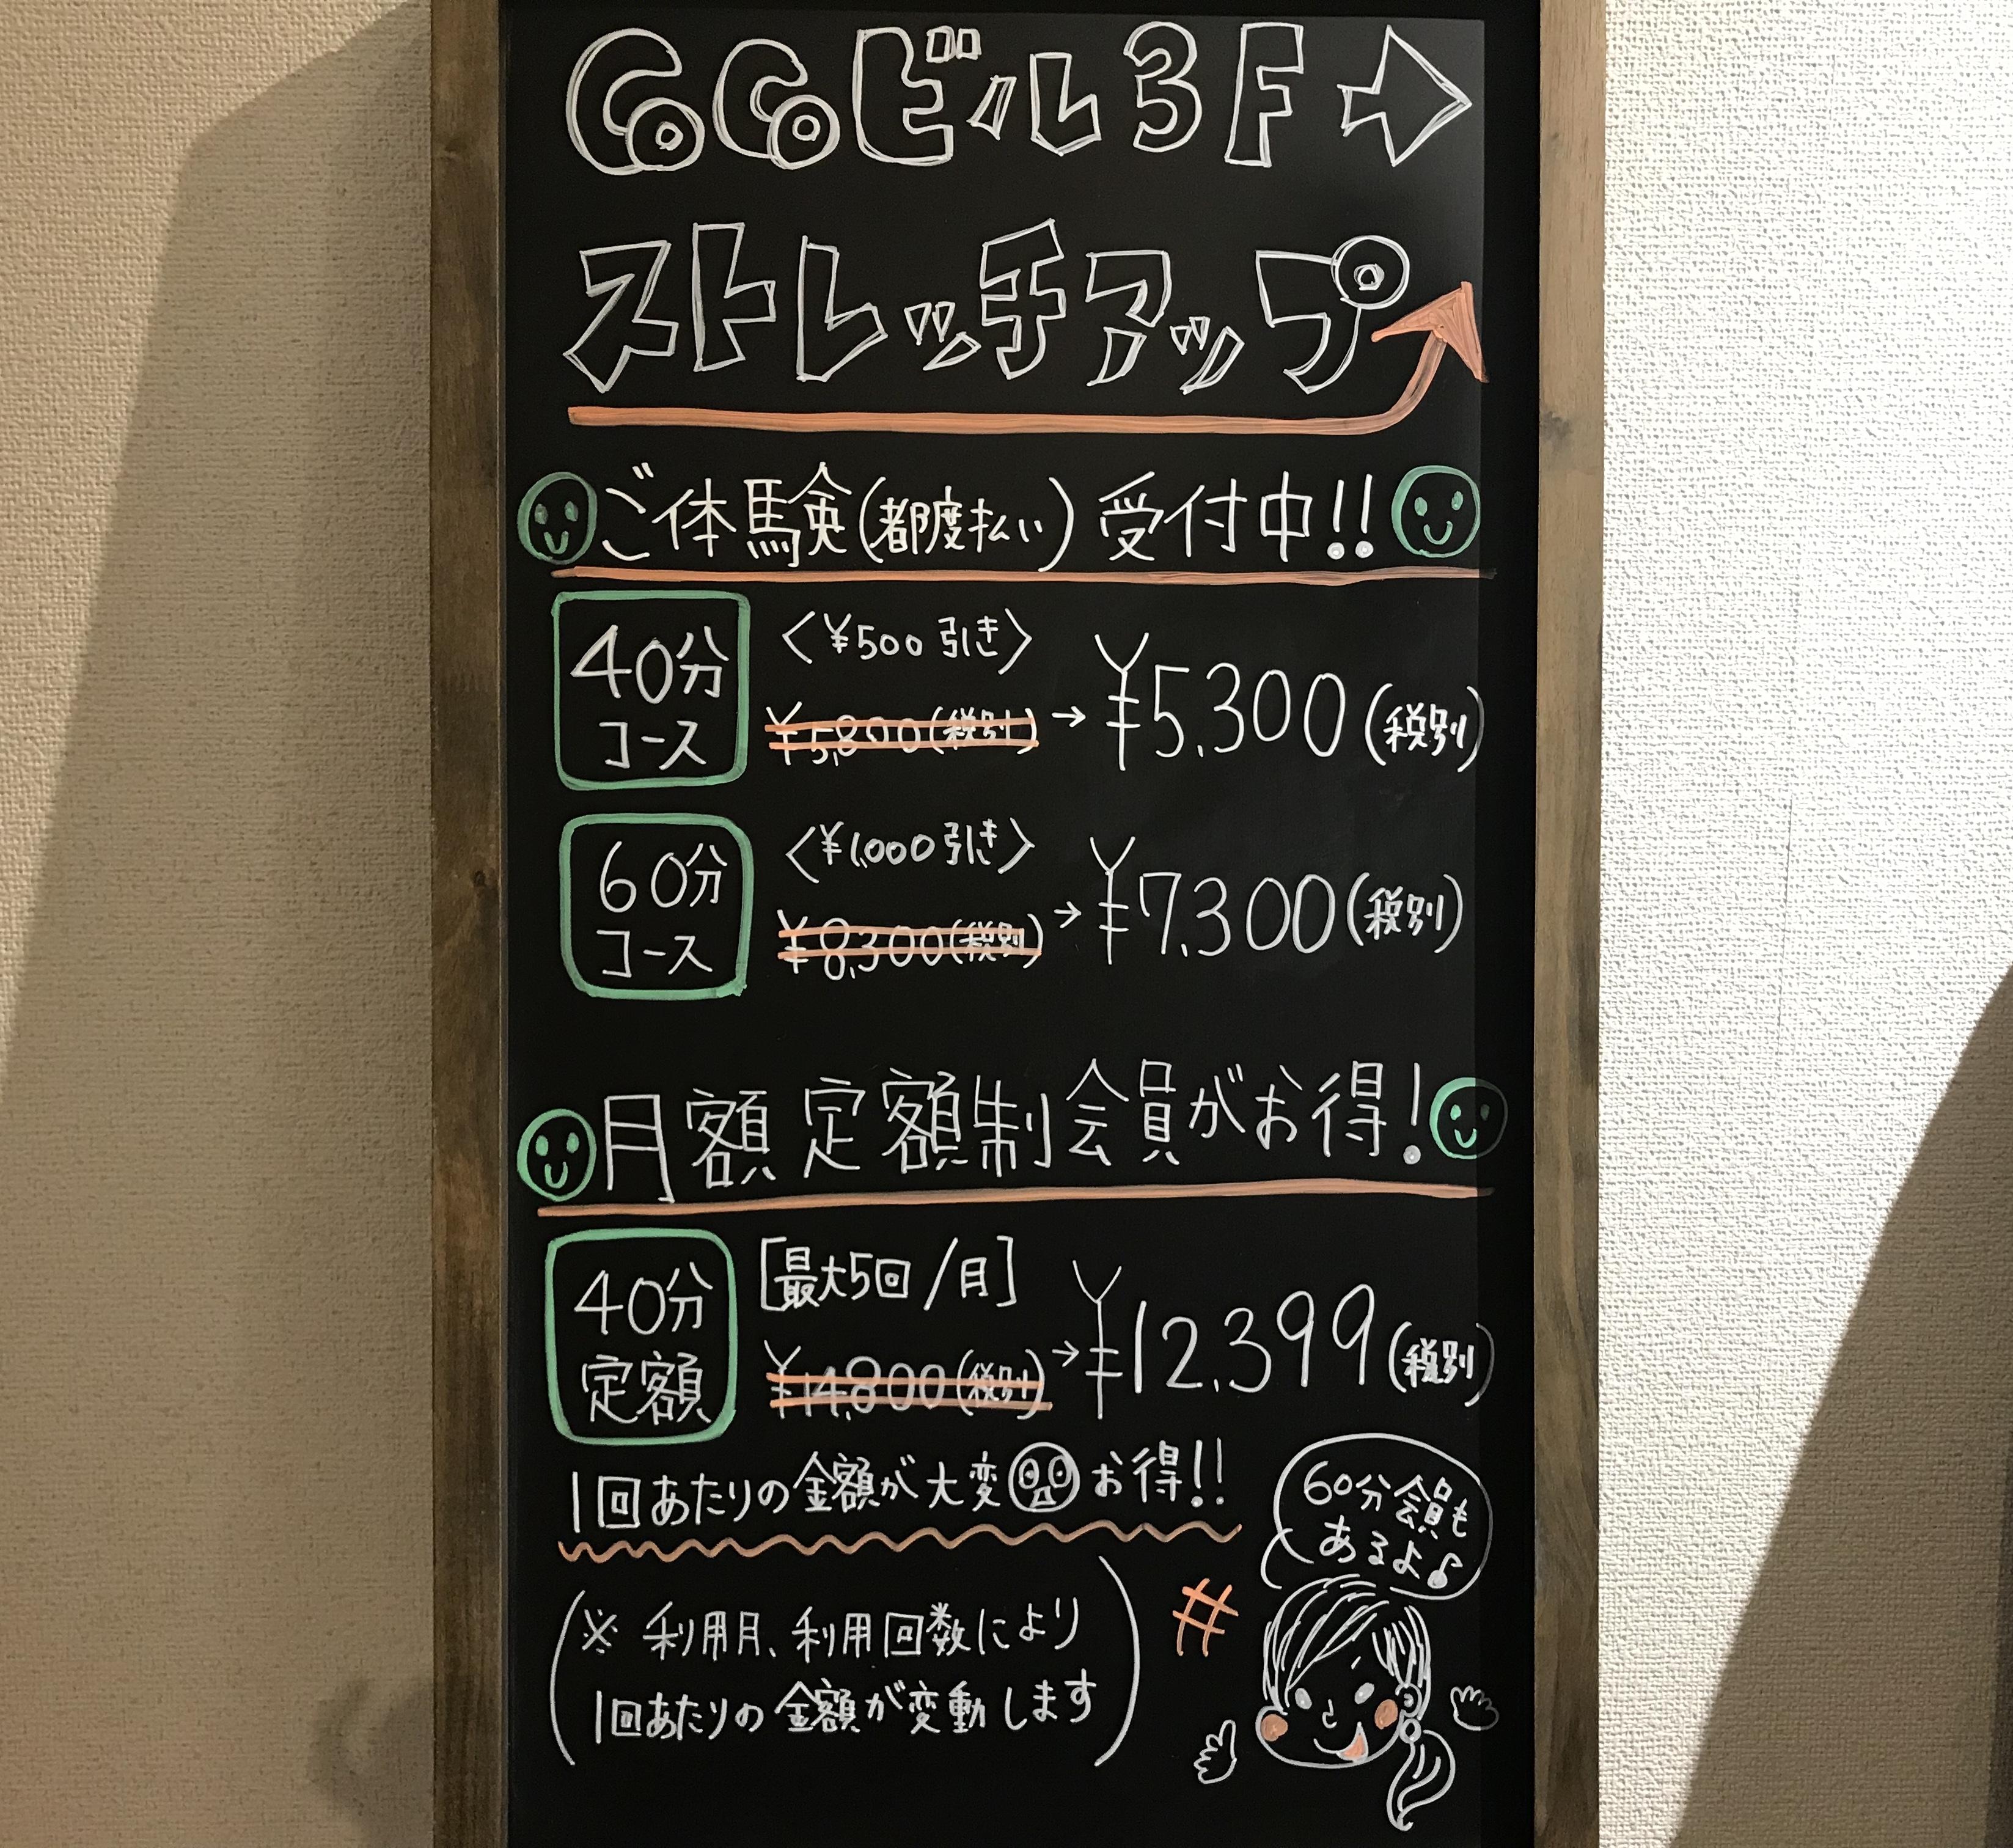 CoCoビル3F→
ストレッチアップ
ご体験(都度払い)受付中!!
40分
コース
〈¥500引き〉
¥5,800(税別)→¥5,300(税別)
60分
コース
〈¥1,000引き〉
¥8,300(税別)→¥7,300(税別)
月額定額制会員がお得!
40分
定額
[最大5回/月]
¥14,800(税別)→¥12,399(税別)
1回あたりの金額が大変お得!!
60分会員も
あるよ♪
(※利用月、利用回数により
1回あたりの金額が変動します)